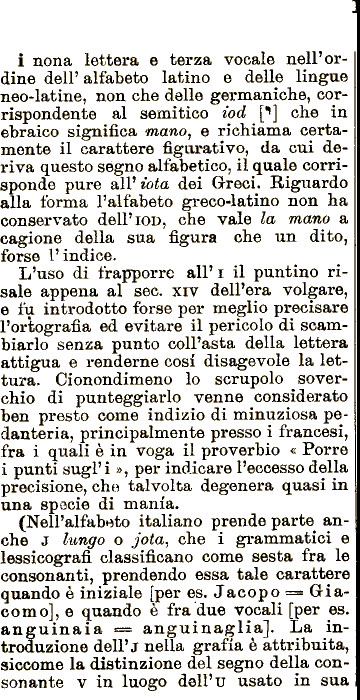 i nona lettera e terza vocale nell'or-
dine dell'alfabeto latino e delle lingue
neo-latine, non che delle germaniche, cor-
rispondente al semitico iod [י] che in
ebraico significa mano, e richiama certa-
mente il carattere figurativo, da cui de-
riva questo segno alfabetico, il quale corri-
sponde pure all'iota dei Greci. Riguardo
alla forma l'alfabeto greco-latino non ha
conservato dell'IOD, che vale la mano a
cagione della sua figura che un dito,
forse l'indice.
L'uso di frapporre all'I il puntino ri-
sale appena al sec. XIV dell'era volgare,
e fu introdotto forse per meglio precisare
l'ortografia ed evitare il pericolo di scam-
biarlo senza punto coll'asta della lettera
attigua e renderne cosí disagevole la let-
tura. Cionondimeno lo scrupolo sover-
chio di punteggiarlo venne considerato
ben presto come indizio di minuziosa pe-
danteria, principalmente presso i francesi,
fra i quali è in voga il proverbio « Porre
i punti sugl'i », per indicare l'eccesso della
precisione, che talvolta degenera quasi in
una specie di manía.
(Nell'alfabeto italiano prende parte an-
che J lungo o jota, che i grammatici e
lessicografi classificano come sesta fra le
consonanti, prendendo essa tale carattere
quando è iniziale [per es. Jacopo = Gia-
como], e quando è fra due vocali [per es.
anguinaia = anguinaglia]. La in-
troduzione dell'J nella grafía è attribuita,
siccome la distinzione del segno della con-
sonante V in luogo dell'U usato in sua